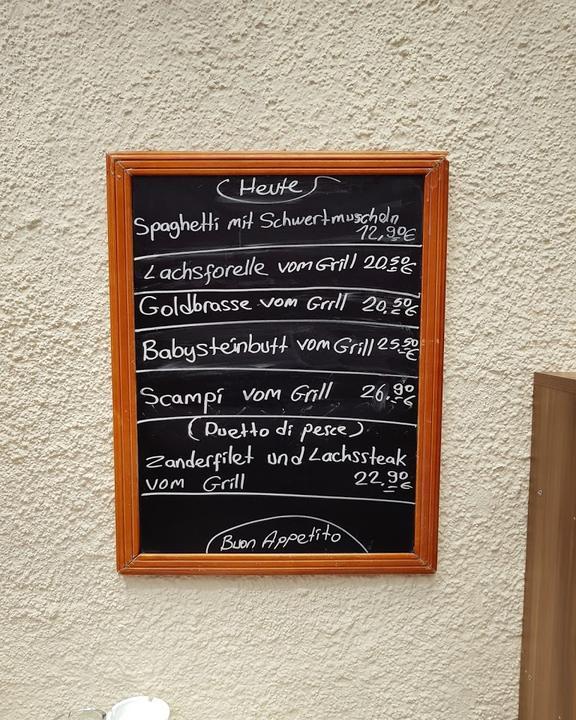 (Heute)
Spaghetti mit Schwertmuscheln
12,90€
Lachsforelle vom Grill 20,50€
Goldbrasse vom Grill 20,50€
Babysteinbutt vom Grill 25,50€
Scampi vom Grill 26,90€
(Duetto di pesce)
Zanderfilet und Lachssteak
vom Grill 22,90€
Buon Appetito